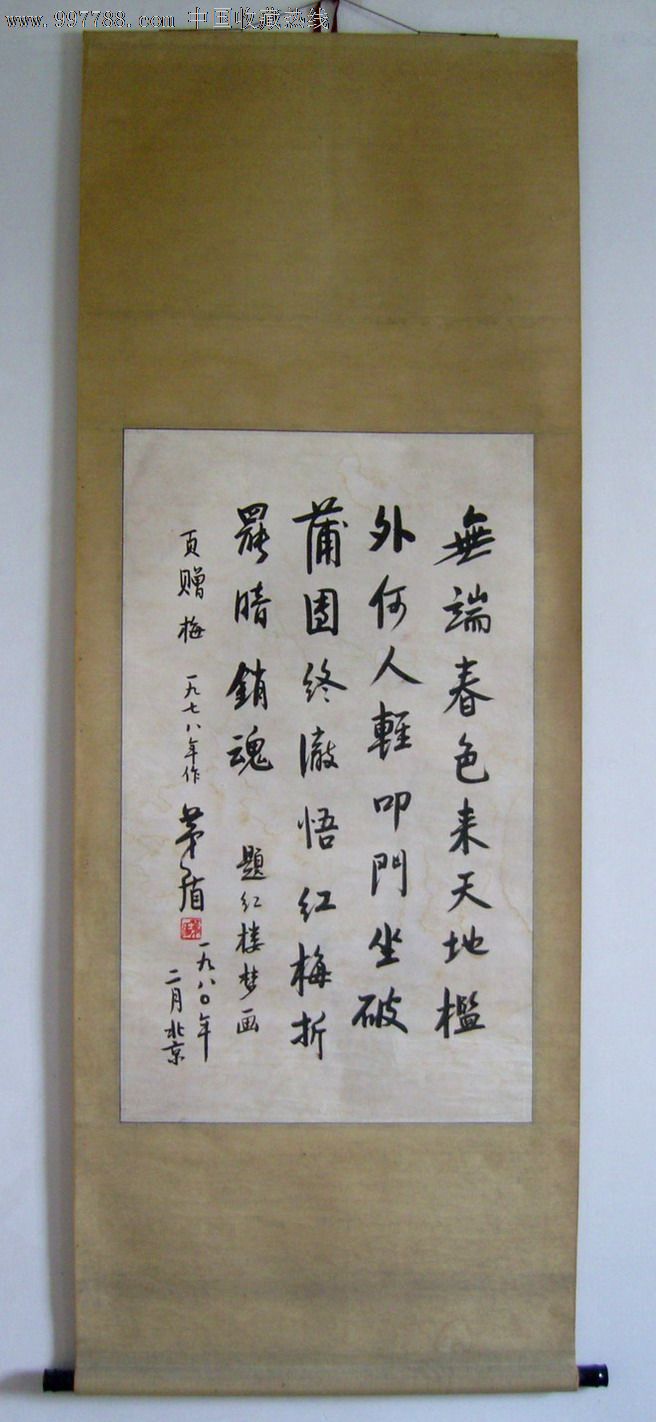 www.997788.com 中国收藏热线
無端春色来天地檻
外何人輕叩門坐破
蒲團终澈悟红梅折
罷暗銷魂 题红楼梦画
页赠梅 一九七八年作 茅盾
一九八〇年
二月北京